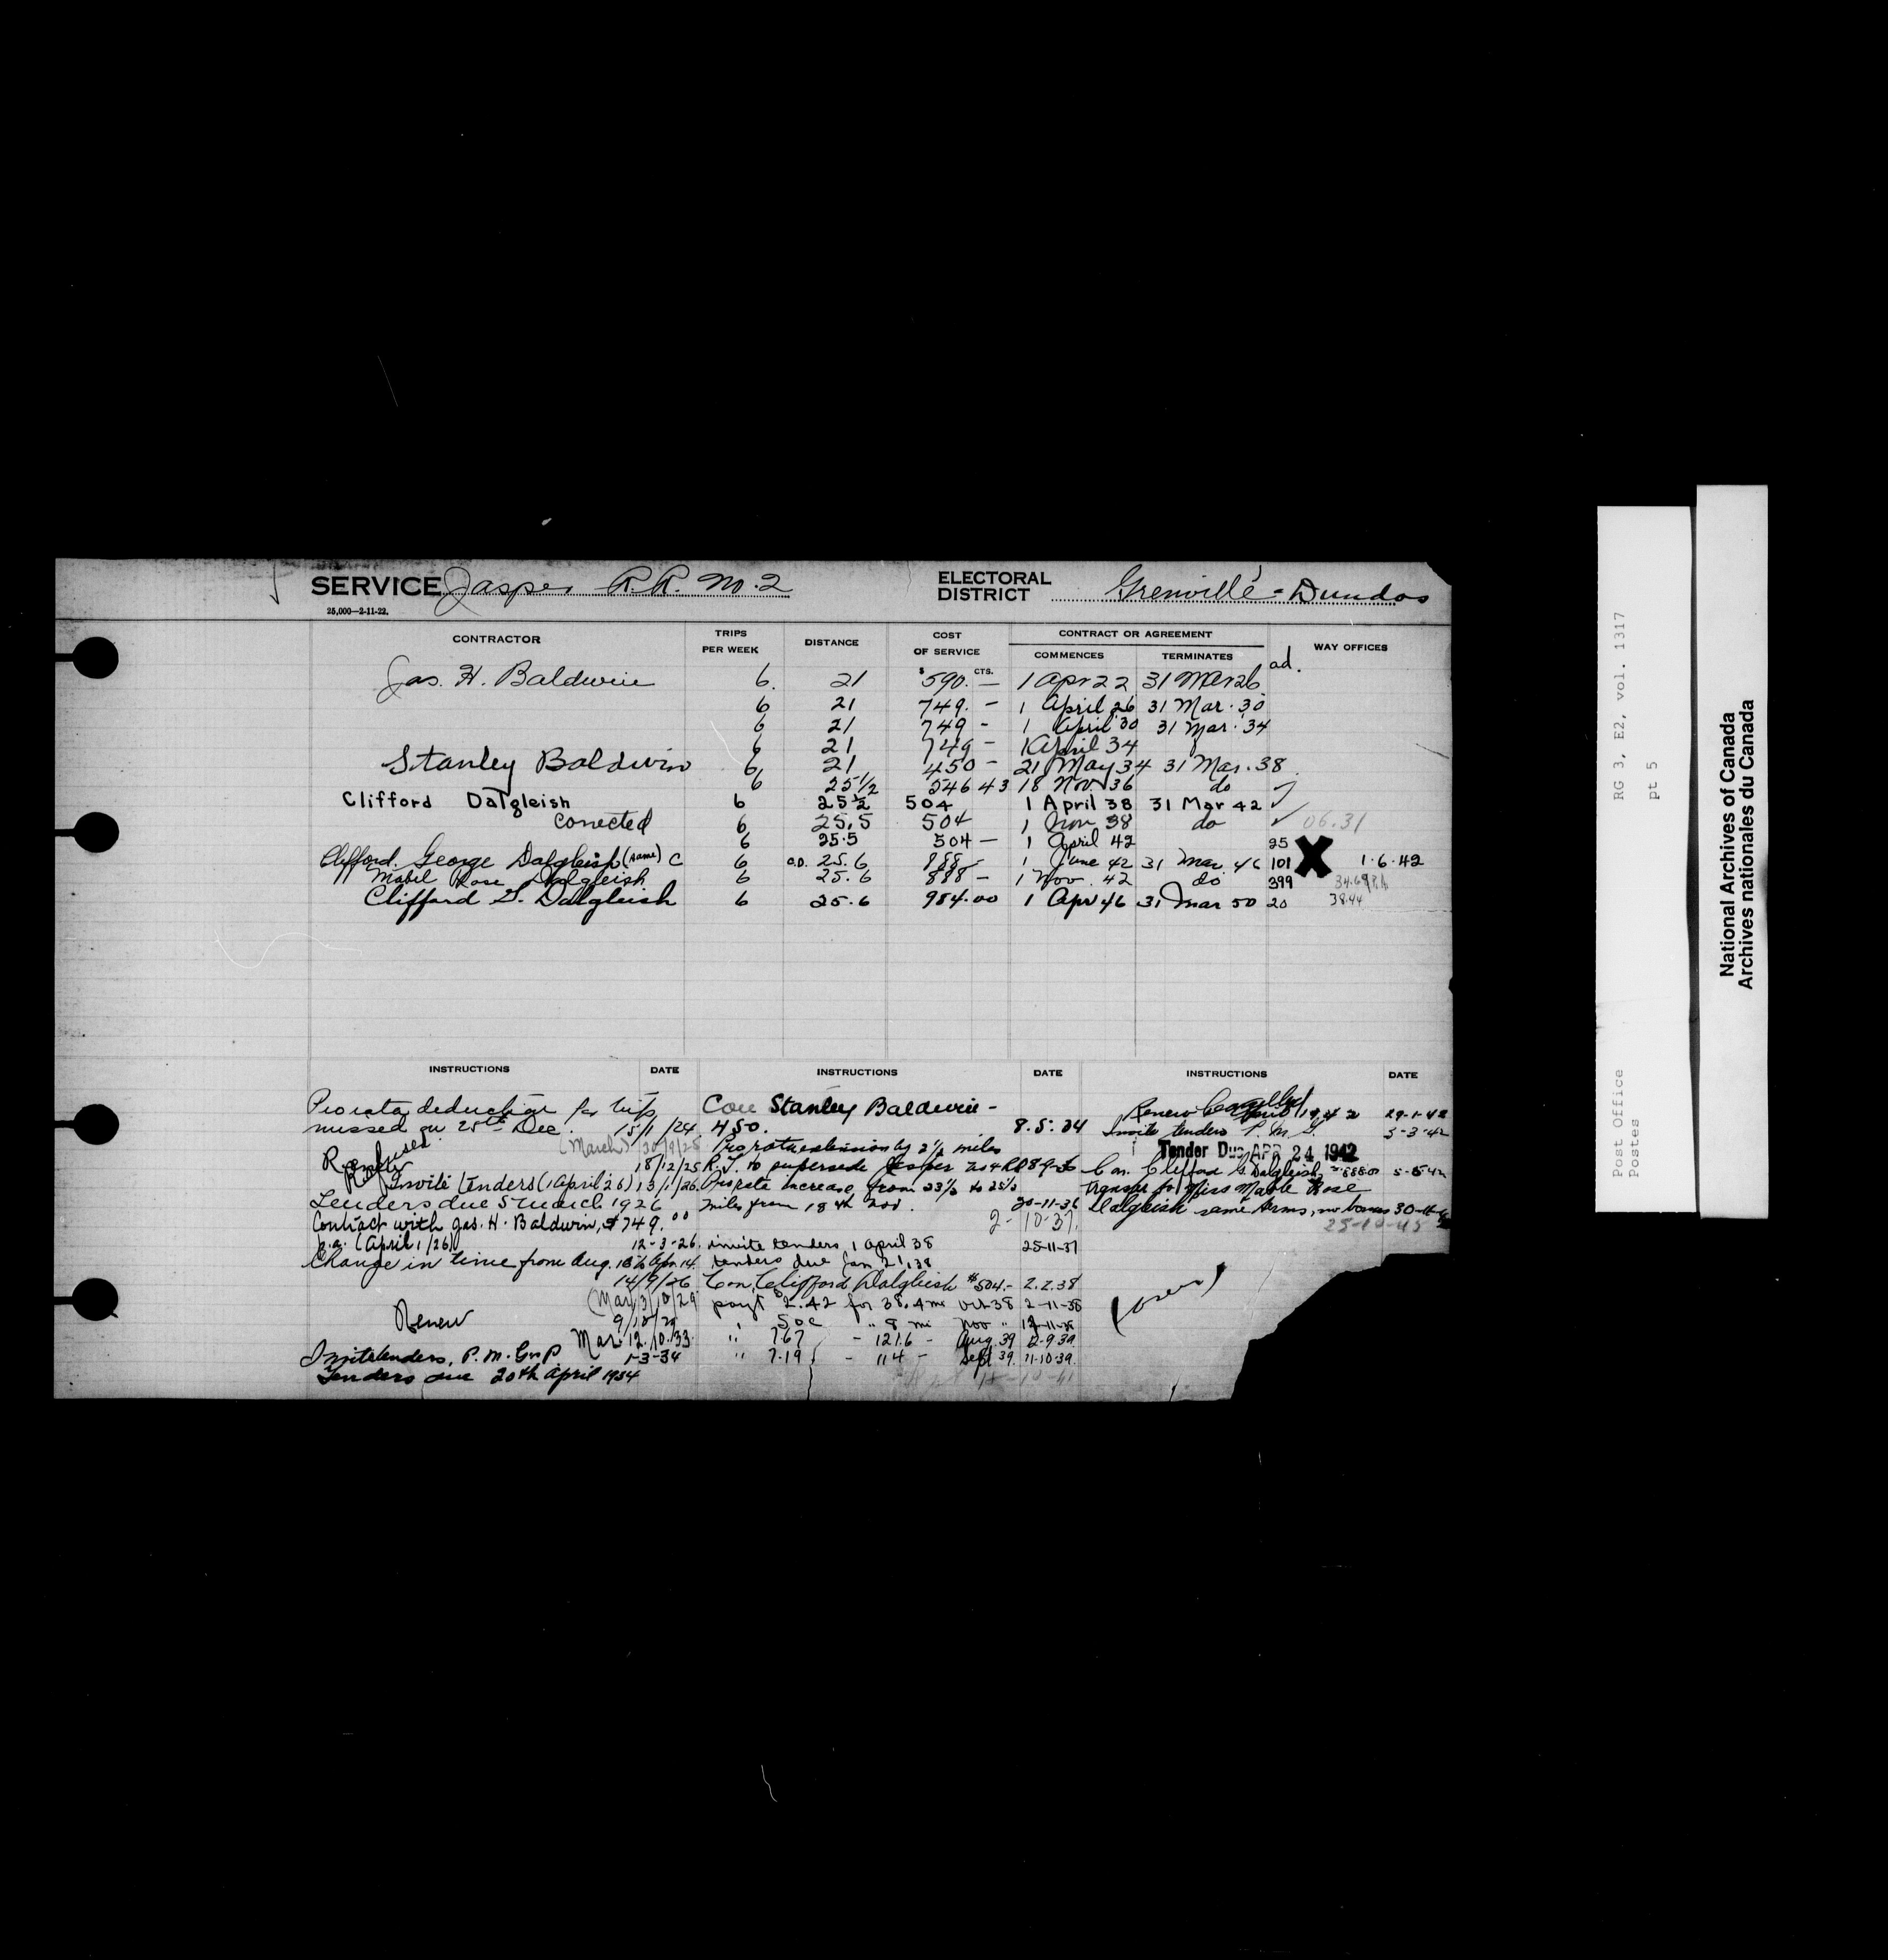 SERVICE Jasper R.R. No. 2 ELECTORAL DISTRICT Grenville-Dundas
25,000—2-11-22.
CONTRACTOR TRIPS PER WEEK DISTANCE COST OF SERVICE CONTRACT OR AGREEMENT COMMENCES TERMINATES WAY OFFICES
ad.
Jas. H. Baldwin 6. 21 $590. — CTS. 1 Apr 22 31 Mar 26
6 21 749. – 1 April 26 31 Mar. 30
6 21 749 – 1 April 30 31 Mar. 34
6 21 749 – 1 April 34
Stanley Baldwin 6 21 450 – 21 May 34 31 Mar. 38
6 25 1/2 546 43 18 Nov. 36 do
Clifford Dalgleish 6 25 1/2 504 1 April 38 31 Mar 42 ✓
Corrected 6 25.5 504 1 Nov 38 do ✓ 06.31
6 25.5 504 — 1 April 42 25
Clifford George Dalgleish (same) C 6 O.D. 25.6 888 – 1 June 42 31 Mar. 46 101 X 1.6.42
Mabel Rose Dalgleish 6 25.6 888 – 1 Nov. 42 do 399 34.69
Clifford G. Dalgleish 6 25.6 984.00 1 Apr 46 31 Mar 50 20 38.44
INSTRUCTIONS DATE INSTRUCTIONS DATE INSTRUCTIONS DATE
Pro rata deduction for trip
missed on 25th Dec. 15/1/24
(March) 30/9/25
Refused
Renew 18/12/25
Invite tenders (1 April 26) 13/1/26
Tenders due 5 March 1926
Contract with Jas. H. Baldwin, $749.00
p.a. (April 1/26) 12-3-26.
Change in time from Aug. 16 to Apr. 14.
14/9/26
(Mar) 3/10/29
Renew 9/12/29
Mar. 12.10.33
Invite tenders, P.M. G n P 1-3-34
Tenders due 20th April 1934
Con Stanley Baldwin –
450. 8.5.34
Pro rata extension by 2 1/2 miles
R.J. to supersede Jasper
Pro rata increase from 23 1/2 to 25 1/2
miles from 18th Nov. 20-11-36
2-10-37.
invite tenders 1 April 38 25-11-37
tenders due Jan 21, 38
Con. Clifford Dalgleish $504.– 2.2.38
payt $2.42 for 38.4 mi Oct 38 2-11-38
" 50c " 8 mi Nov "
" 7.67 – 121.6 – Aug. 39 12-9-39
" 7.19 – 114 – Sept 39. 11-10-39.
Renew Cancelled April 1942 29-1-42
Invite tenders P.M.G. 3-3-42
Tender Due APR 24 1942
Con. Clifford G. Dalgleish, 888.00 5-5-42
transfer to Miss Mable Rose
Dalgleish same terms, no bonus
25-10-45
(over)
Post Office
Postes
RG 3, E2, vol. 1317
pt 5
National Archives of Canada
Archives nationales du Canada